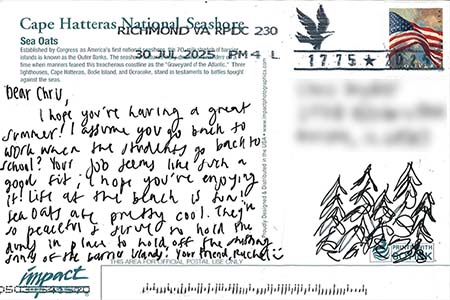 Cape Hatteras National Seashore
RICHMOND VA RPDC 230
Sea Oats
30 JUL 2025 PM 4 L
1775
Established by Congress as America's first national seashore, the 70 mile stretch of barrier
islands is known as the Outer Banks. The
time when mariners feared this treacherous coastline as the "Graveyard of the Atlantic." Three
lighthouses, Cape Hatteras, Bodie Island, and Ocracoke, stand in testaments to battles fought
against the seas.
Dear Chris,
I hope you're having a great
summer! I assume you go back to
work when the students go back to
school? Your job seems like such a
good fit; I hope you're enjoying
it! Life at the beach is fun!
Sea Oats are pretty cool. They're
so peaceful & strive to hold the
in place to hold off the
of the barrier islands! Your friend, Rachel
www.impactphotographics.com
Proudly Designed & Distributed in the USA
PRINTED WITH
SOY INK
impact
THIS AREA FOR OFFICIAL POSTAL USE ONLY